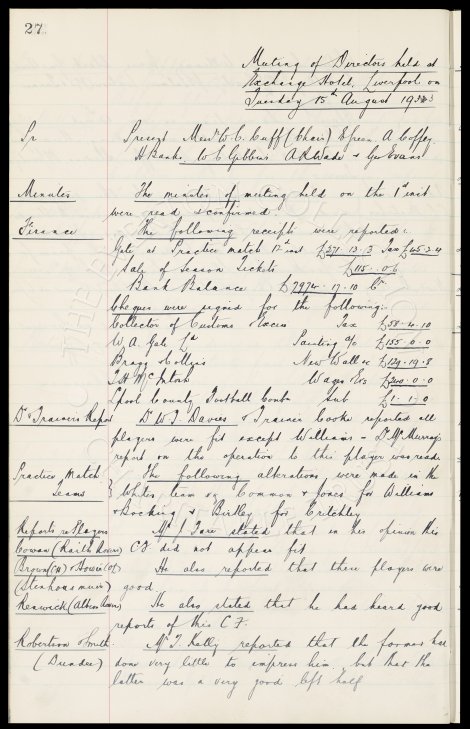 27
Meeting of Directors held at
Exchange Hotel, Liverpool on
Tuesday 15th August 1933
Present Messrs W.C. Cuff (Chair) E Green. A. Coffey.
H Banks. W C Gibbins A R Wade & Geo Evans
Minutes The minutes of meeting held on the 1st inst
were read & confirmed.
Finance The following receipts were reported:-
Gate at Practice match 12th inst £271.13.3 Tax £45.2.4
Sale of Season Tickets £115.0.6
Bank Balance £7974.17.10 Cr
Cheques were signed for the following:-
Collector of Customs & Excise Tax £58.4.10
W. A. Gale Ld Painting a/c £155.0.0
Bragg New Wall &c £129.19.8
J H McIntosh Wages &c £200.0.0
Lpool County Football Comb Sub £1.1.0
Dr & Trainers Report Dr W J Davies & Trainer Cooke reported all
players were fit except Williams - D McMurray
report on the operation to this player was read
Practice Match The following alterations were made in the
Teams Whites team Common & Jones for Williams
& Bocking & Birtley for Critchley
Reports re Players Mr J Fare stated that in his opinion this
Cowan (Raith Rovers) CF did not appear fit
Brown (CH) & Howie (OL) He also reported that these players were
(Stenhousemuir) good
Renwick (Albion Rovers) He also stated that he had heard good
reports of this CF.
Robertson & Smith Mr T. Kelly reported that the former had
(Dundee) done very little to impress him, but that the
latter was a very good left half